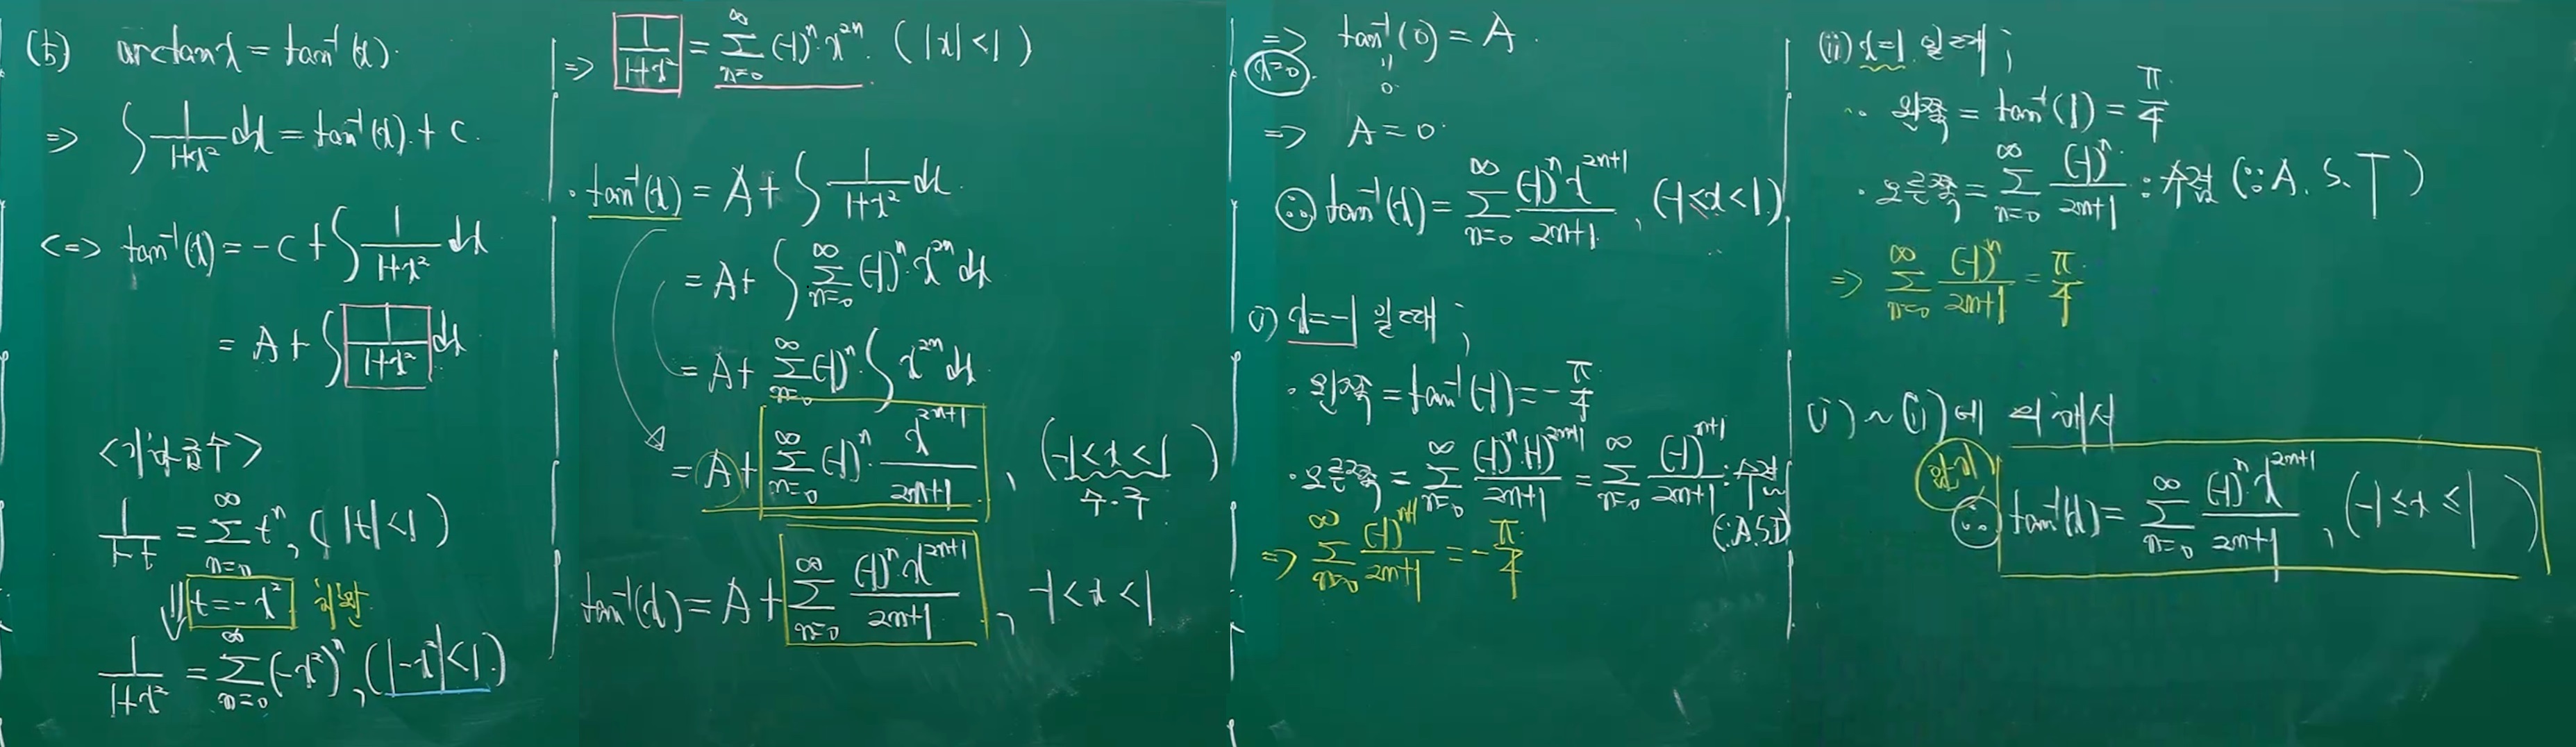 (b) arctanx = tan⁻¹(x).
⇒ ∫ 1/(1+x²) dx = tan⁻¹(x) + c.
<=> tan⁻¹(x) = -c + ∫ 1/(1+x²) dx
= A + ∫ 1/(1+x²) dx
<기하급수>
1/(1-t) = ∑_{n=0}^{∞} tⁿ, (|t|<1)
⇓ t = -x² 치환
1/(1+x²) = ∑_{n=0}^{∞} (-x²)ⁿ, (|-x²|<1.)
⇒ 1/(1+x²) = ∑_{n=0}^{∞} (-1)ⁿ·x²ⁿ. (|x|<1)
· tan⁻¹(x) = A + ∫ 1/(1+x²) dx.
= A + ∫ ∑_{n=0}^{∞} (-1)ⁿ·x²ⁿ dx
= A + ∑_{n=0}^{∞} (-1)ⁿ·∫ x²ⁿ dx
= A + ∑_{n=0}^{∞} (-1)ⁿ· x²ⁿ⁺¹/(2n+1), (-1<x<1)
수.구
tan⁻¹(x) = A + ∑_{n=0}^{∞} (-1)ⁿ·x²ⁿ⁺¹/(2n+1), -1<x<1
⇒ tan⁻¹(0) = A.
x=0. ॥ 0.
⇒ A = 0.
∴ tan⁻¹(x) = ∑_{n=0}^{∞} (-1)ⁿ x²ⁿ⁺¹/(2n+1), (-1<x<1)
(i) x=-1 일 때;
· 왼쪽 = tan⁻¹(-1) = -π/4
· 오른쪽 = ∑_{n=0}^{∞} (-1)ⁿ·(-1)²ⁿ⁺¹/(2n+1) = ∑_{n=0}^{∞} (-1)ⁿ⁺¹/(2n+1) : 수렴
(∵A.S.T)
⇒ ∑_{n=0}^{∞} (-1)ⁿ⁺¹/(2n+1) = -π/4
(ii) x=1 일 때;
· 왼쪽 = tan⁻¹(1) = π/4
· 오른쪽 = ∑_{n=0}^{∞} (-1)ⁿ/(2n+1) : 수렴 (∵A.S.T)
⇒ ∑_{n=0}^{∞} (-1)ⁿ/(2n+1) = π/4
(i) ~ (ii)에 의해서
암기
∴ tan⁻¹(x) = ∑_{n=0}^{∞} (-1)ⁿ·x²ⁿ⁺¹/(2n+1), (-1≤x≤1)